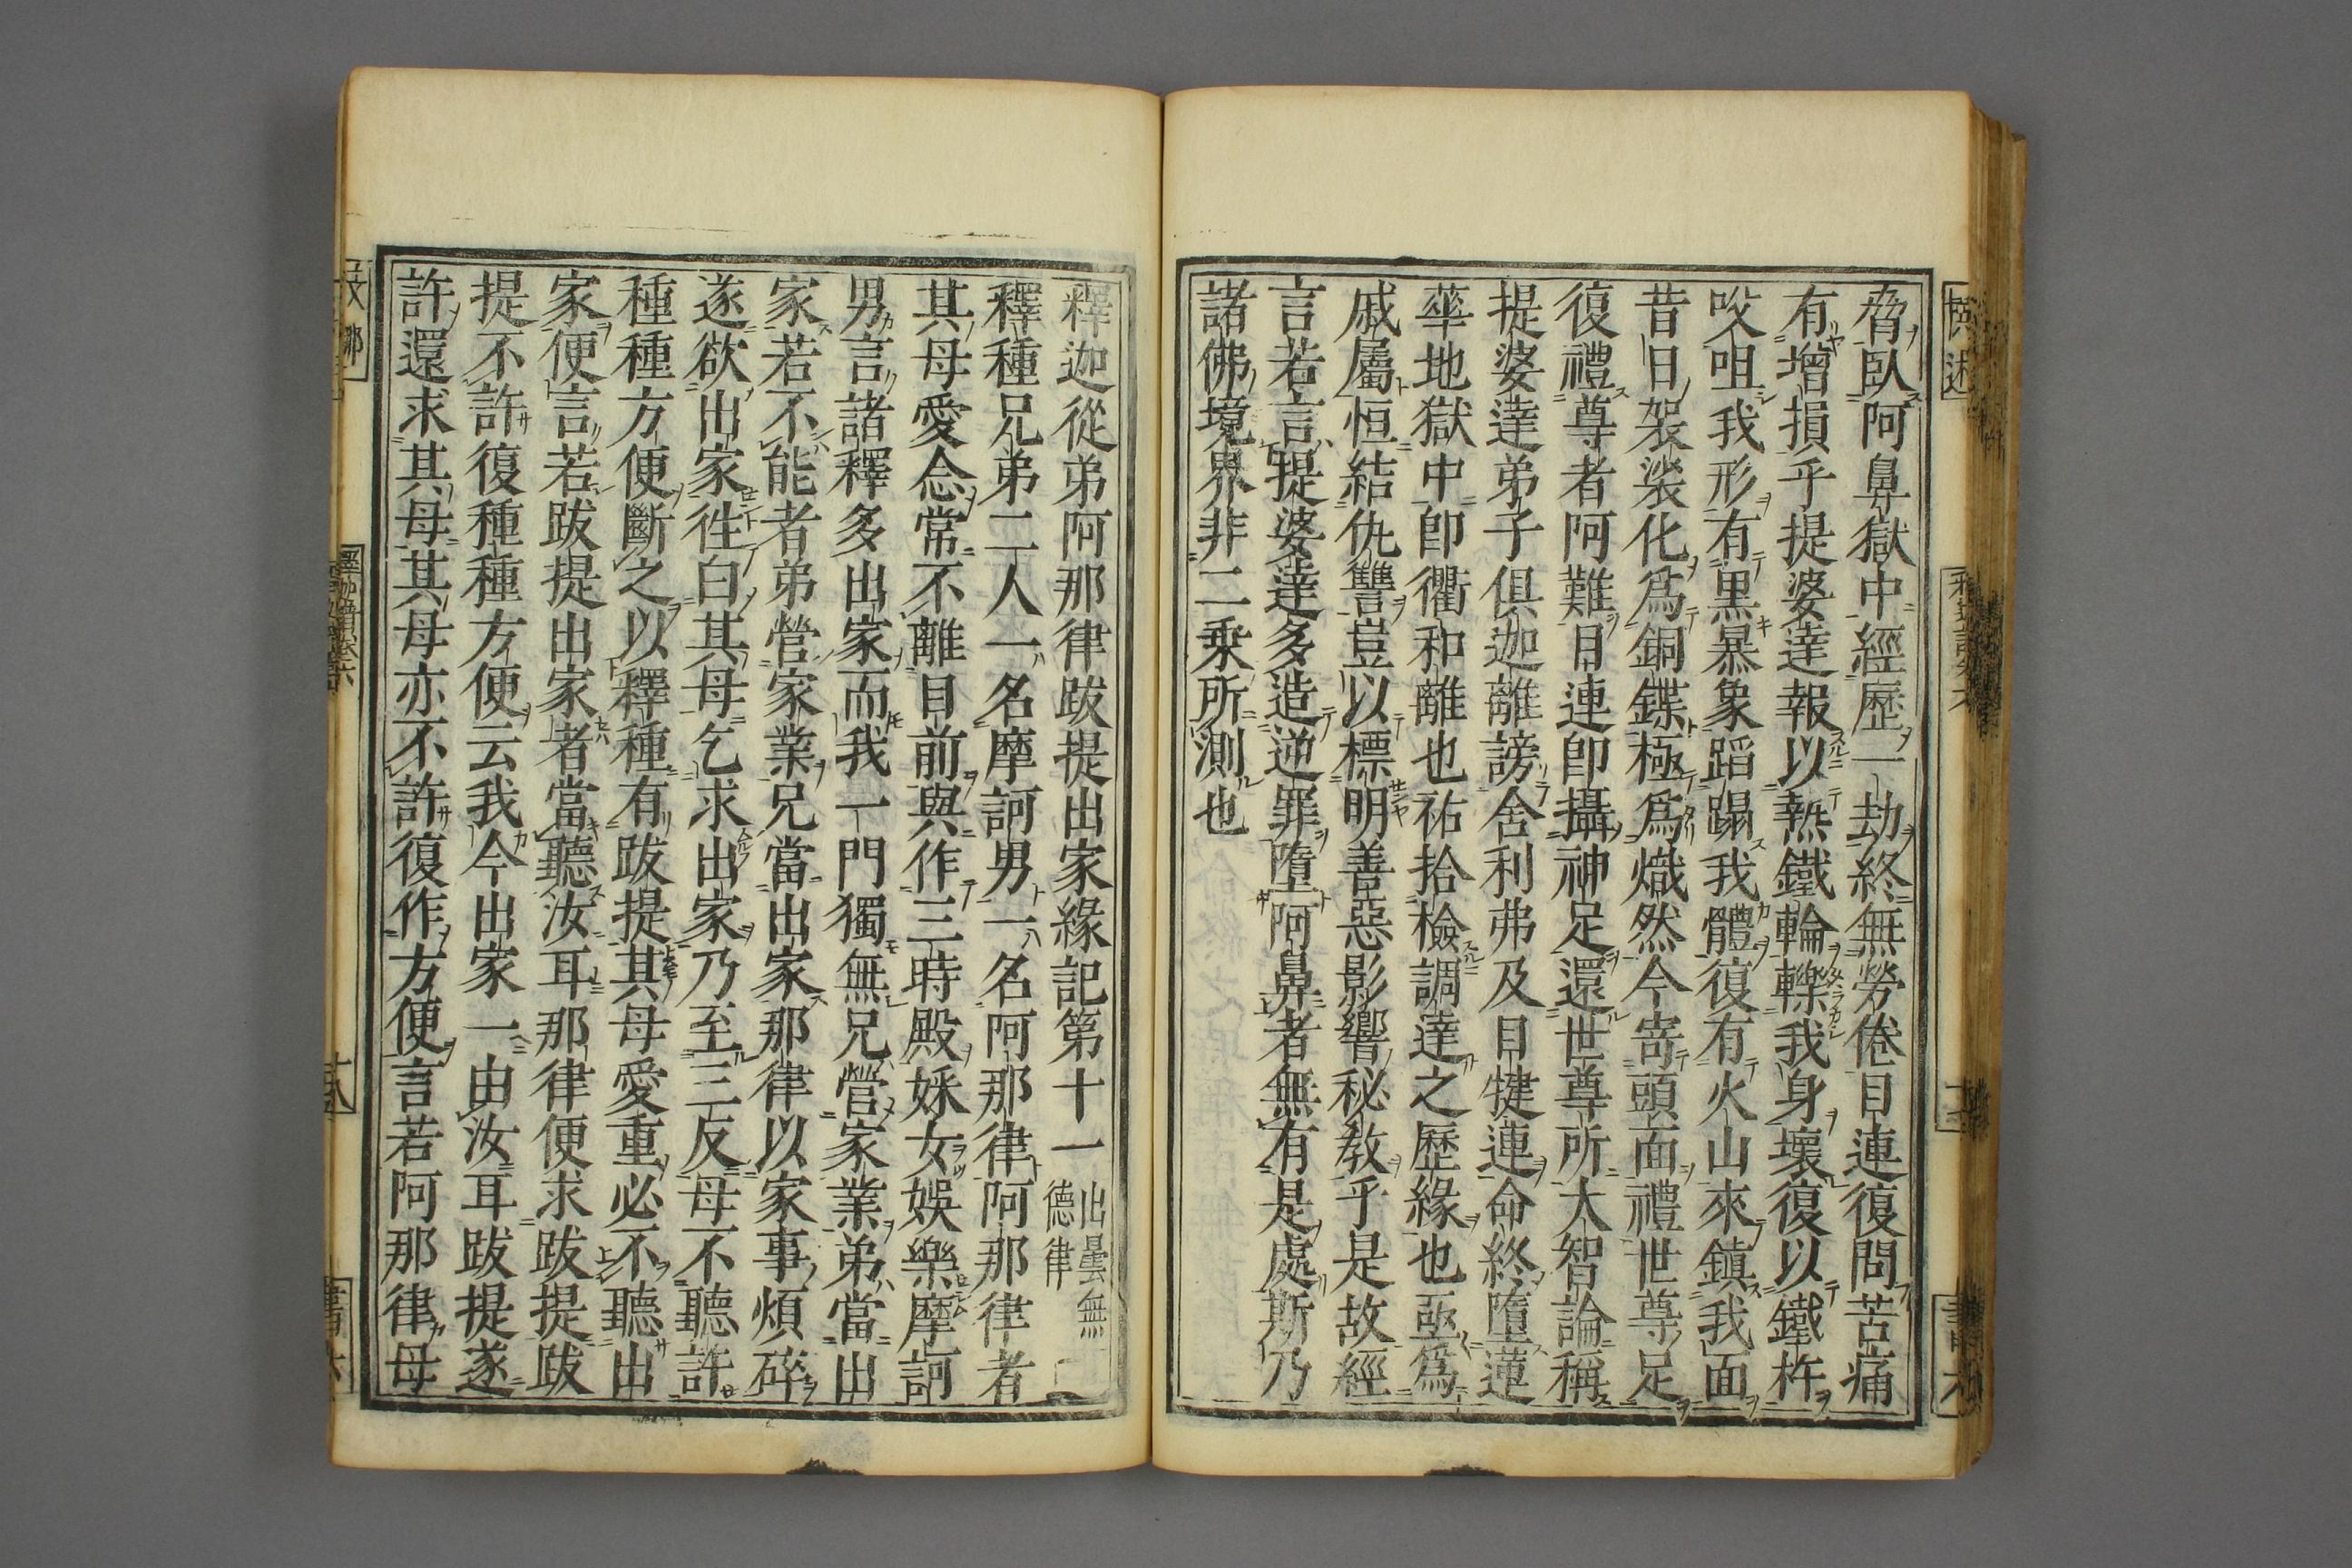 脅臥阿鼻獄中經歷一劫終無勞倦目連復問苦痛
有增損乎提婆達報以熱鐵輪轢我身壞復以鐵杵
㕮咀我形有黑暴象蹈蹋我體復有火山來鎮我面
昔日袈裟化爲銅鍱極爲熾然今寄頭面禮世尊足
復禮尊者阿難目連卽攝神足還世尊所大智論稱
提婆達弟子俱迦離謗舍利弗及目犍連命終墮蓮
華地獄中卽衢和離也祐拾檢調達之歷緣也亟爲
戚屬恒結仇讐豈以標明善惡影響秘教乎是故經
言若言提婆達多造逆罪墮阿鼻者無有是處斯乃
諸佛境界非二乘所測也
釋迦從弟阿那律跋提出家緣記第十一 出曇無德律
釋種兄弟二人一名摩訶男一名阿那律阿那律者
其母愛念常不離目前與作三時殿婇女娛樂摩訶
男言諸釋多出家而我一門獨無兄營家業弟當出
家若不能者弟營家業兄當出家那律以家事煩碎
遂欲出家徃白其母乞求出家乃至三反母不聽許
種種方便斷之以釋種有跋提其母愛重必不聽出
家便言若跋提出家者當聽汝耳那律便求跋提跋
提不許復種種方便云我今出家一由汝耳跋提遂
許還求其母其母亦不許復作方便言若阿那律母